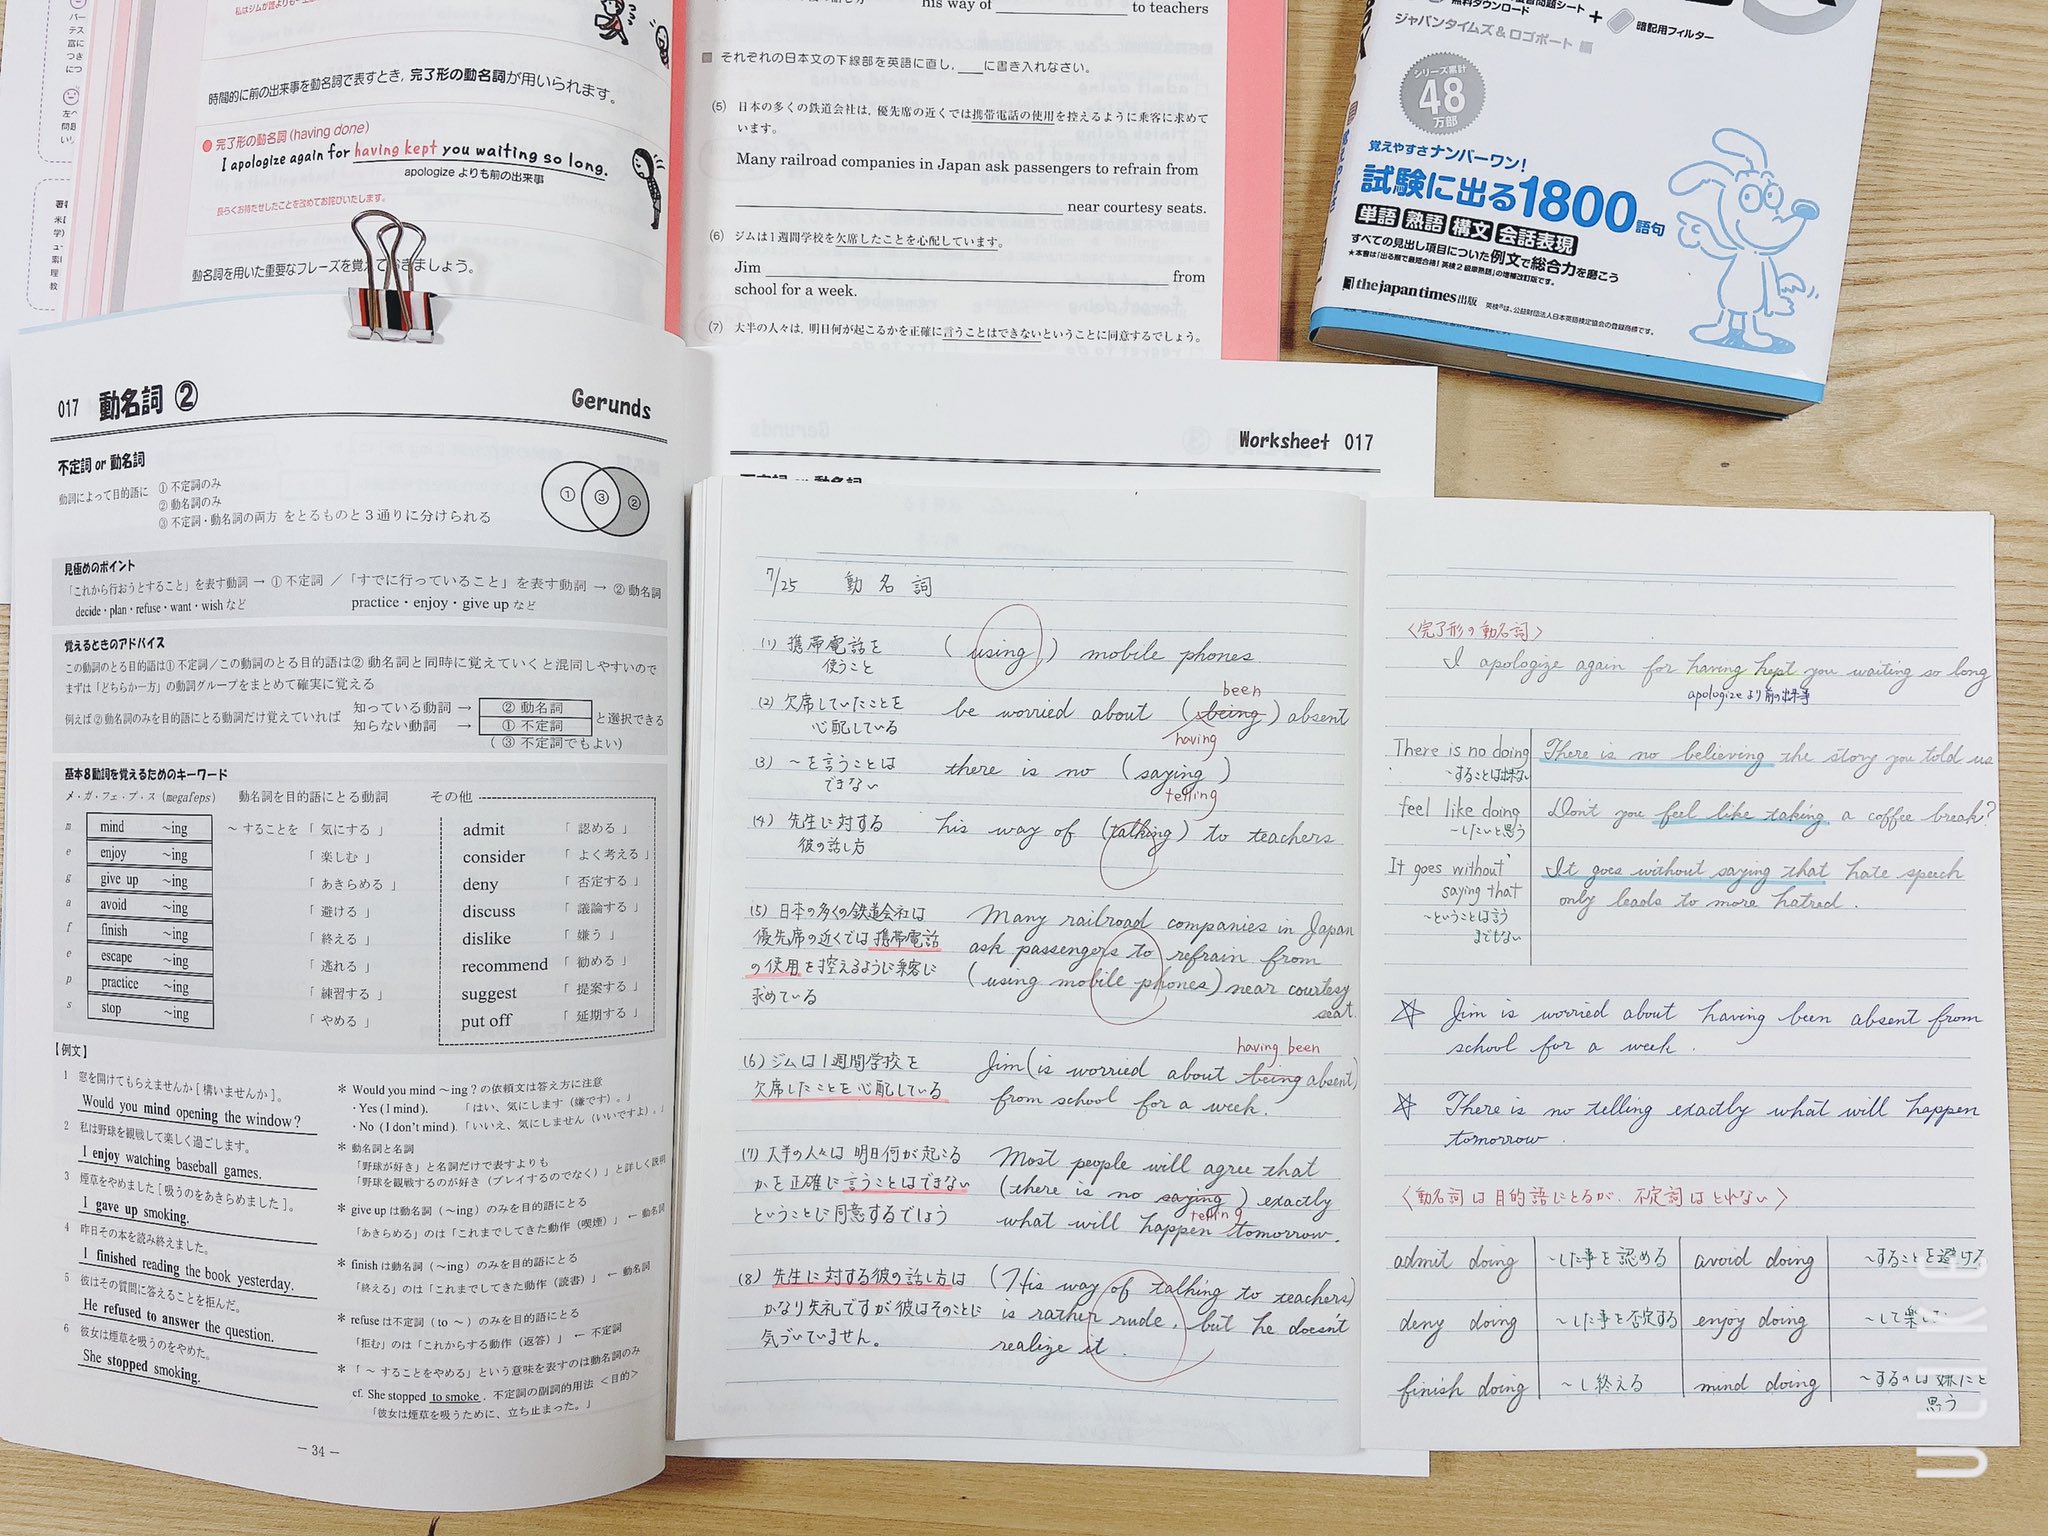 時間的に前の出来事を動名詞で表すとき, 完了形の動名詞が用いられます。
● 完了形の動名詞 (having done)
I apologize again for having kept you waiting so long.
apologize よりも前の出来事
長らくお待たせしたことを改めてお詫びいたします。
動名詞を用いた重要なフレーズを覚えておきましょう。
his way of ______ to teachers
■ それぞれの日本文の下線部を英語に直し, ___に書き入れなさい。
(5) 日本の多くの鉄道会社は, 優先席の近くでは携帯電話の使用を控えるように乗客に求めて
います。
Many railroad companies in Japan ask passengers to refrain from
______ near courtesy seats.
(6) ジムは1週間学校を欠席したことを心配しています。
Jim ______ from
school for a week.
(7) 大半の人々は, 明日何が起こるかを正確に言うことはできないということに同意するでしょう。
無料ダウンロード
+ 暗記用フィルター
ジャパンタイムズ&ロゴポート 編
シリーズ累計
48
万部
覚えやすさナンバーワン!
試験に出る1800語句
単語 熟語 構文 会話表現
すべての見出し項目についた例文で総合力を磨こう
★本書は「出る順で最短合格!英検2級単熟語」の増補改訂版です。
the japan times 出版
英検®は、公益財団法人日本英語検定協会の登録商標です。
017 動名詞 ② Gerunds
不定詞 or 動名詞
動詞によって目的語に ① 不定詞のみ
② 動名詞のみ
③ 不定詞・動名詞の両方 をとるものと3通りに分けられる
① ③ ②
見極めのポイント
「これから行おうとすること」を表す動詞 → ① 不定詞 / 「すでに行っていること」を表す動詞 → ② 動名詞
decide・plan・refuse・want・wish など practice・enjoy・give up など
覚えるときのアドバイス
この動詞のとる目的語は① 不定詞/この動詞のとる目的語は② 動名詞と同時に覚えていくと混同しやすいので
まずは「どちらか一方」の動詞グループをまとめて確実に覚える
例えば② 動名詞のみを目的語にとる動詞だけ覚えていれば 知っている動詞 → ② 動名詞
知らない動詞 → ① 不定詞 と選択できる
(③ 不定詞でもよい)
基本8動詞を覚えるためのキーワード
メ・ガ・フェ・プ・ス (megafeps) 動名詞を目的語にとる動詞 その他
m mind ~ing ~することを「気にする」 admit 「認める」
e enjoy ~ing 「楽しむ」 consider 「よく考える」
g give up ~ing 「あきらめる」 deny 「否定する」
a avoid ~ing 「避ける」 discuss 「議論する」
f finish ~ing 「終える」 dislike 「嫌う」
e escape ~ing 「逃れる」 recommend 「勧める」
p practice ~ing 「練習する」 suggest 「提案する」
s stop ~ing 「やめる」 put off 「延期する」
【例文】
1 窓を開けてもらえませんか [構いませんか]。
Would you mind opening the window?
2 私は野球を観戦して楽しく過ごします。
I enjoy watching baseball games.
3 煙草をやめました [吸うのをあきらめました]。
I gave up smoking.
4 昨日その本を読み終えました。
I finished reading the book yesterday.
5 彼はその質問に答えることを拒んだ。
He refused to answer the question.
6 彼女は煙草を吸うのをやめた。
She stopped smoking.
* Would you mind ~ing? の依頼文は答え方に注意
・Yes (I mind). 「はい、気にします (嫌です)。」
・No (I don't mind). 「いいえ、気にしません (いいですよ)。」
* 動名詞と名詞
「野球が好き」と名詞だけで表すよりも
「野球を観戦するのが好き (プレイするのでなく)」と詳しく説明
* give up は動名詞 (~ing) のみを目的語にとる
「あきらめる」のは「これまでしてきた動作 (喫煙)」 ← 動名詞
* finish は動名詞 (~ing) のみを目的語にとる
「終える」のは「これまでしてきた動作 (読書)」 ← 動名詞
* refuse は不定詞 (to ~) のみを目的語にとる
「拒む」のは「これからする動作 (返答)」 ← 不定詞
* 「~することをやめる」という意味を表すのは動名詞のみ
cf. She stopped to smoke. 不定詞の副詞的用法 <目的>
「彼女は煙草を吸うために、立ち止まった。」
― 34 ―
Worksheet 017
7/25 動名詞
(1) 携帯電話を
使うこと
(using) mobile phones
(2) 欠席していたことを
心配している
been
be worried about (being) absent
having
(3) ~を言うことは
できない
there is no (saying)
telling
(4) 先生に対する
彼の話し方
his way of (talking) to teachers
(5) 日本の多くの鉄道会社は
優先席の近くでは携帯電話
の使用を控えるように乗客に
求めている
Many railroad companies in Japan
ask passengers to refrain from
(using mobile phones) near courtesy
seat.
(6) ジムは1週間学校を
欠席したことを心配している
having been
Jim (is worried about being absent)
from school for a week.
(7) 大半の人々は明日何が起こる
かを正確に言うことはできない
ということに同意するでしょう
Most people will agree that
(there is no saying) exactly
telling
what will happen tomorrow.
(8) 先生に対する彼の話し方は
かなり失礼ですが彼はそのことに
気づいていません。
(His way of talking to teachers)
is rather rude, but he doesn't
realize it.
<完了形の動名詞>
I apologize again for having kept you waiting so long
apologizeより前の出来事
There is no doing There is no believing the story you told us
~することは出来ない
feel like doing Don't you feel like taking a coffee break?
~したいと思う
It goes without It goes without saying that hate speech
saying that only leads to more hatred.
~ということは言う
までもない
☆ Jim is worried about having been absent from
school for a week.
☆ There is no telling exactly what will happen
tomorrow.
<動名詞は目的語にとるが、不定詞はとれない>
admit doing ~した事を認める avoid doing ~することを避ける
deny doing ~した事を否定する enjoy doing ~して楽し
finish doing ~し終える mind doing ~するのは嫌だと
思う
Ulike